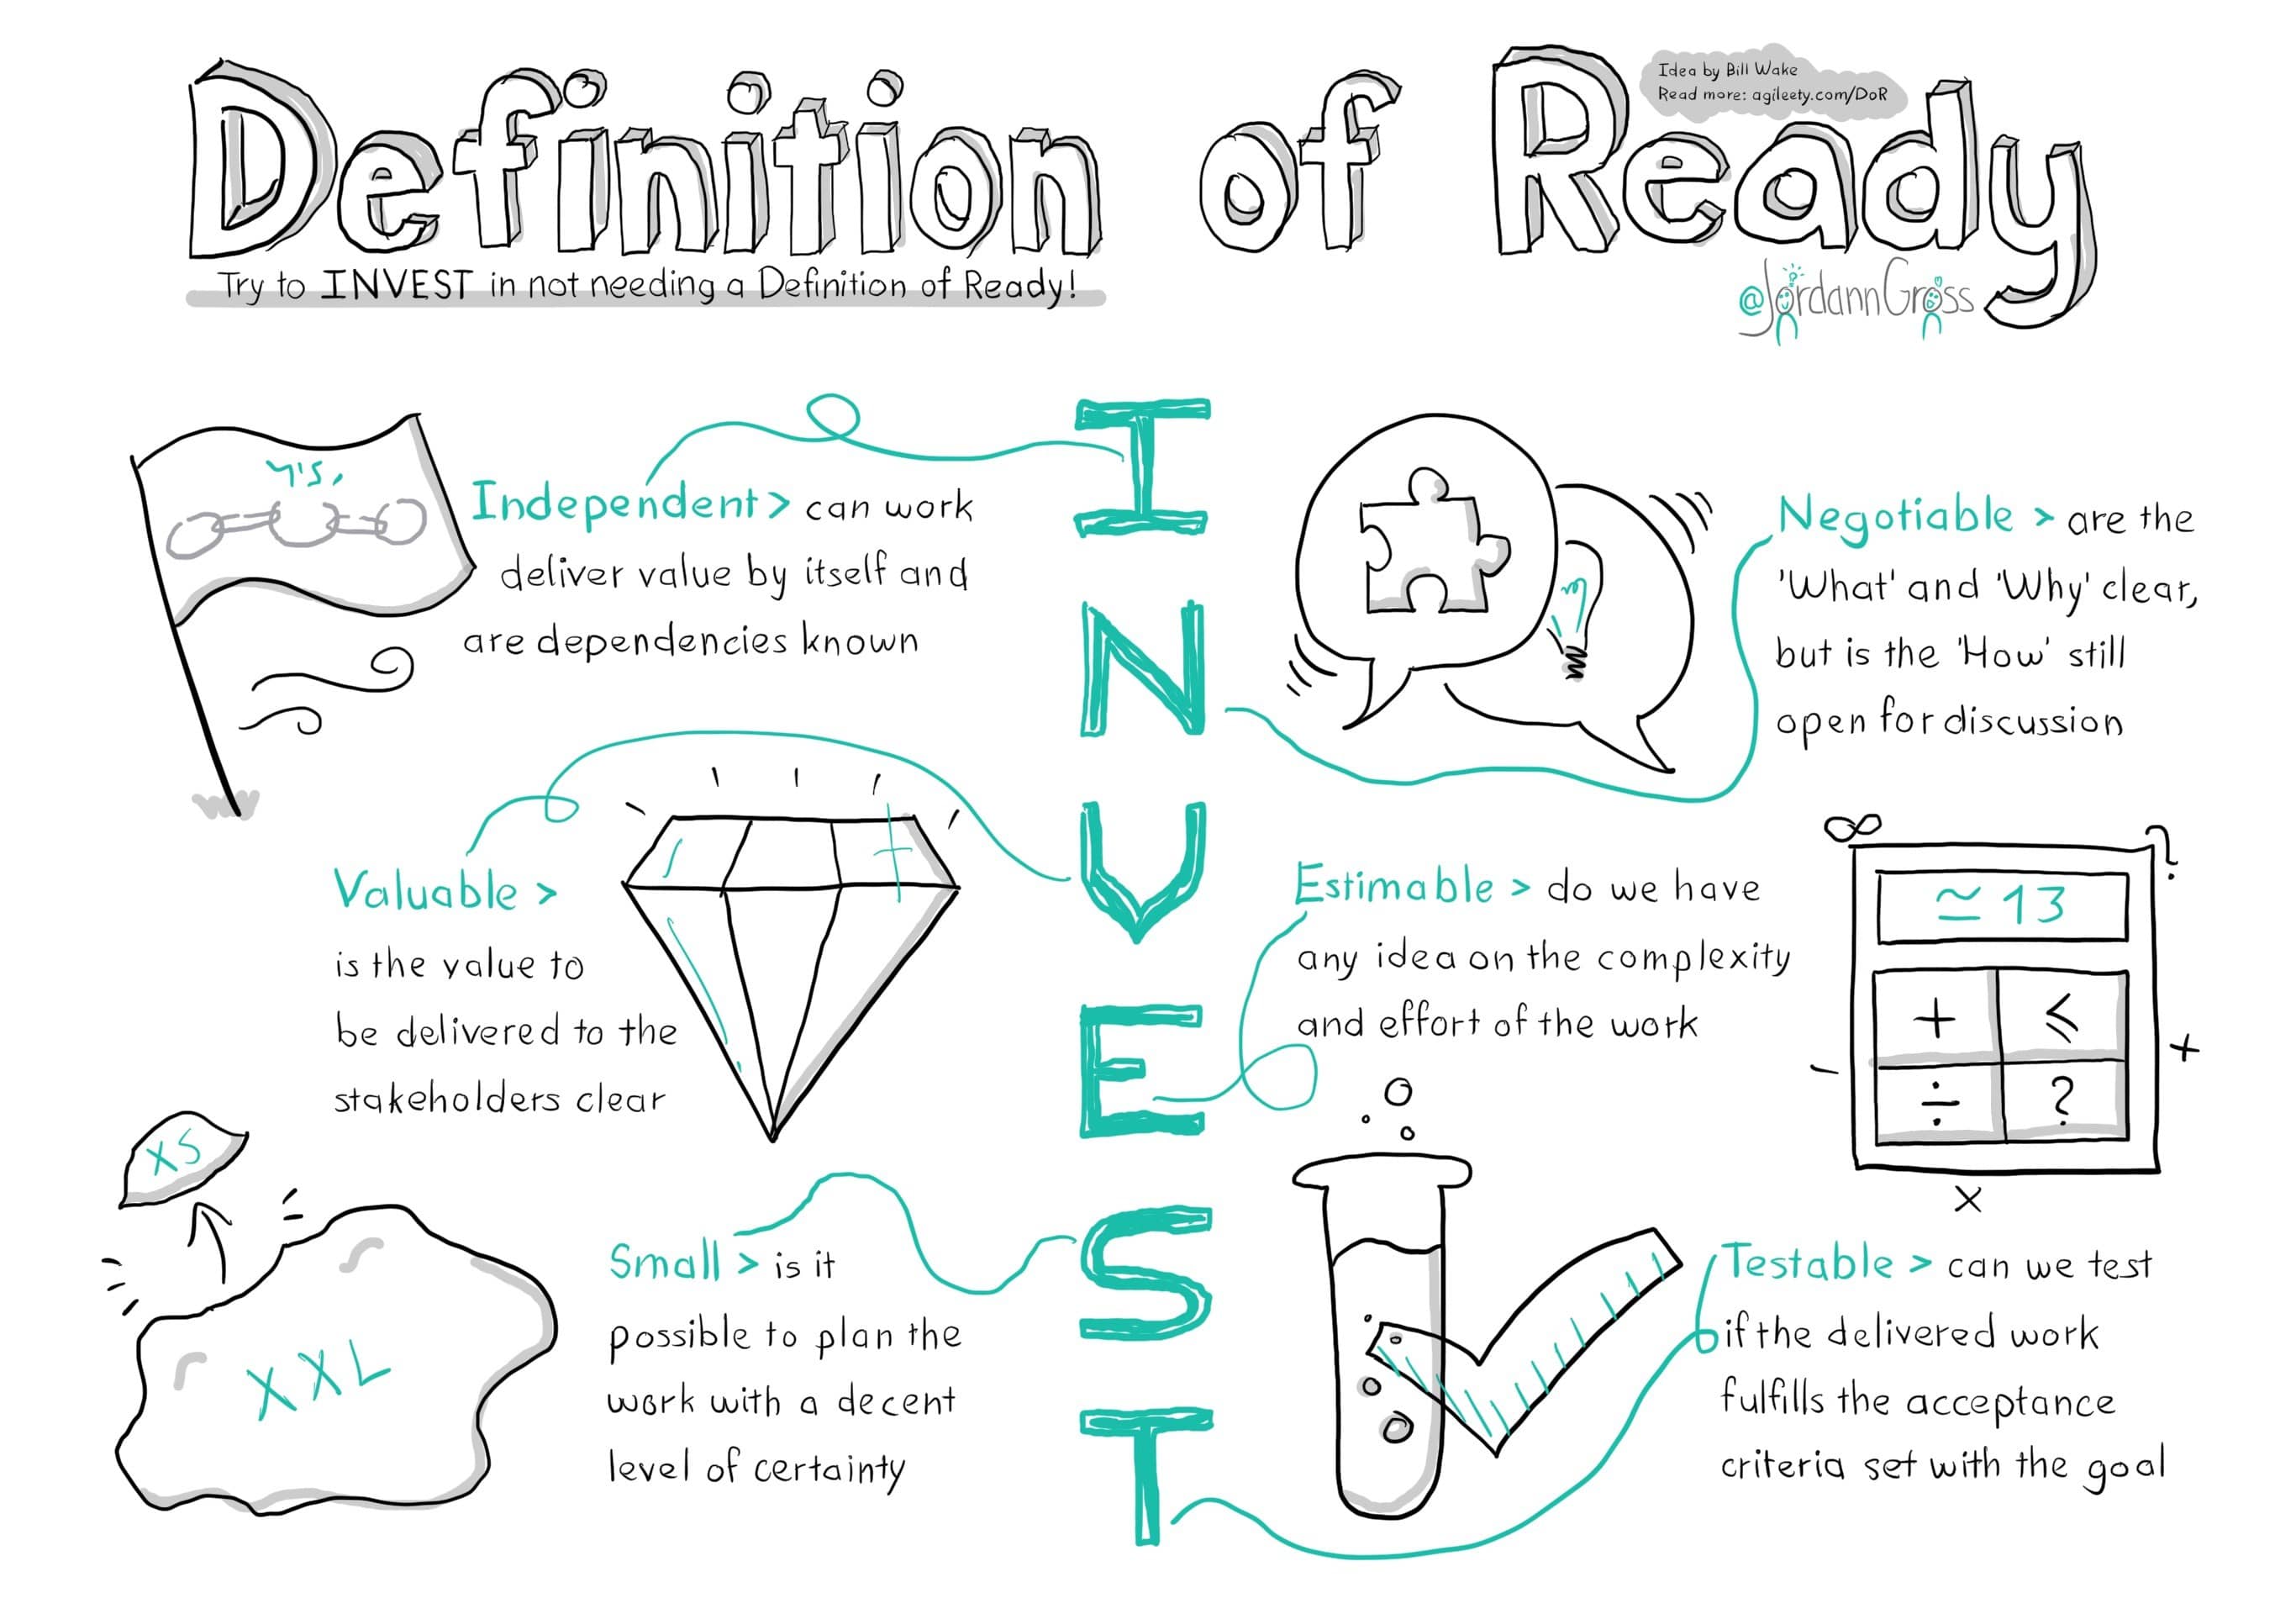 Definition of Ready
Idea by Bill Wake
Read more: agileety.com/DoR
Try to INVEST in not needing a Definition of Ready!
@JordannGross
I
N
V
E
S
T
Independent > can work
deliver value by itself and
are dependencies known
Negotiable > are the
'What' and 'Why' clear,
but is the 'How' still
open for discussion
Valuable >
is the value to
be delivered to the
stakeholders clear
Estimable > do we have
any idea on the complexity
and effort of the work
∞
?
≃ 13
+ ⩽
÷ ?
-
+
x
XS
XXL
Small > is it
possible to plan the
work with a decent
level of certainty
Testable > can we test
if the delivered work
fulfills the acceptance
criteria set with the goal